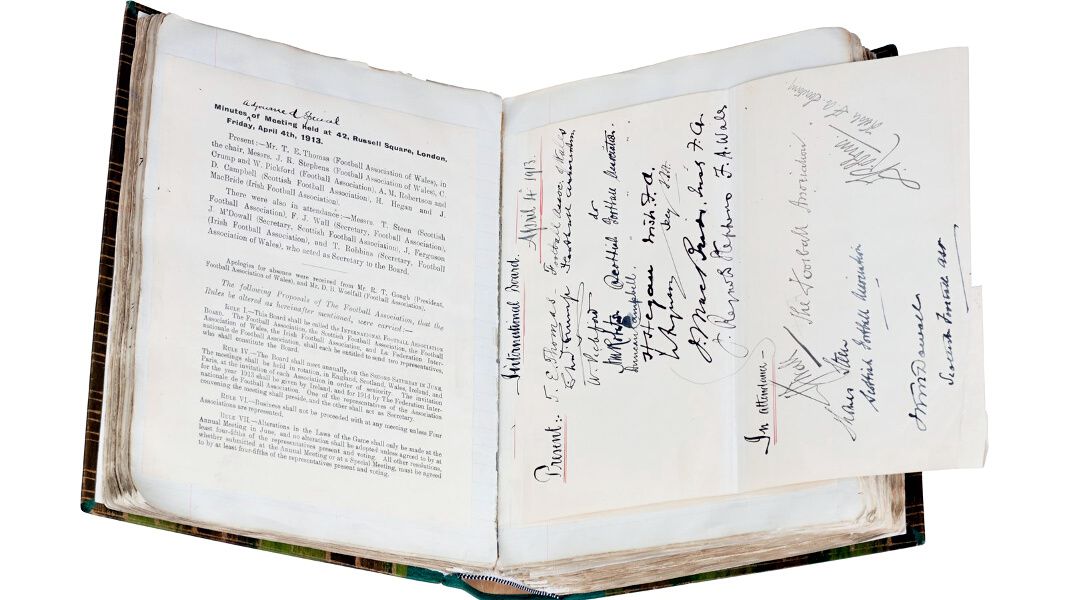 adjourned & Special
Minutes of Meeting Held at 42, Russell Square, London,
Friday, April 4th, 1913.
Present:—Mr. T. E. Thomas (Football Association of Wales), in
the chair, Messrs. J. R. Stephens (Football Association of Wales), C.
Crump and W. Pickford (Football Association), A. M. Robertson and
D. Campbell (Scottish Football Association), H. Hegan and J.
MacBride (Irish Football Association).
There were also in attendance:—Messrs. T. Steen (Scottish
Football Association), F. J. Wall (Secretary, Football Association),
J. M'Dowall (Secretary, Scottish Football Association), J. Ferguson
(Irish Football Association), and T. Robbins (Secretary, Football
Association of Wales), who acted as Secretary to the Board.
Apologies for absence were received from Mr. R. T. Gough (President,
Football Association of Wales), and Mr. D. B. Woolfall (Football Association).
The following Proposals of The Football Association, that the
Rules be altered as hereinafter mentioned, were carried:—
RULE I.—This Board shall be called the INTERNATIONAL FOOTBALL ASSOCIATION
BOARD. The Football Association, the Scottish Football Association, the Football
Association of Wales, the Irish Football Association, and La Federation Inter-
nationale de Football Association, shall each be entitled to send two representatives,
who shall constitute the Board.
RULE IV.—The Board shall meet annually, on the SECOND SATURDAY IN JUNE.
The meetings shall be held, in rotation, in England, Scotland, Wales, Ireland, and
Paris, at the invitation of each Association in order of seniority. The invitation
for the year 1913 shall be given by Ireland, and for 1914 by The Federation Inter-
nationale de Football Association. One of the representatives of the Association
convening the meeting shall preside, and the other shall act as Secretary.
RULE VI.—Business shall not be proceeded with at any meeting unless Four
Associations are represented.
RULE VII.—Alterations in the Laws of the Game shall only be made at the
Annual Meeting in June, and no alteration shall be adopted unless agreed to by at
least four-fifths of the representatives present and voting. All other resolutions,
whether submitted at the Annual Meeting or at a Special Meeting, must be agreed
to by at least four-fifths of the representatives present and voting.
International Board. April 4 1913.
Present:: T. E. Thomas - Football Assoc of Wales
Chas Crump Football Association
W. Pickford do
Scottish Football Association.
Duncan Campbell. " " "
H Hegan Irish F.A.
J. MacBride, Irish F.A.
J. Reynolds Stephens F.A. Wales
In attendance:-
The Football Association
Steen
Scottish Football Association
Scottish Football Assn